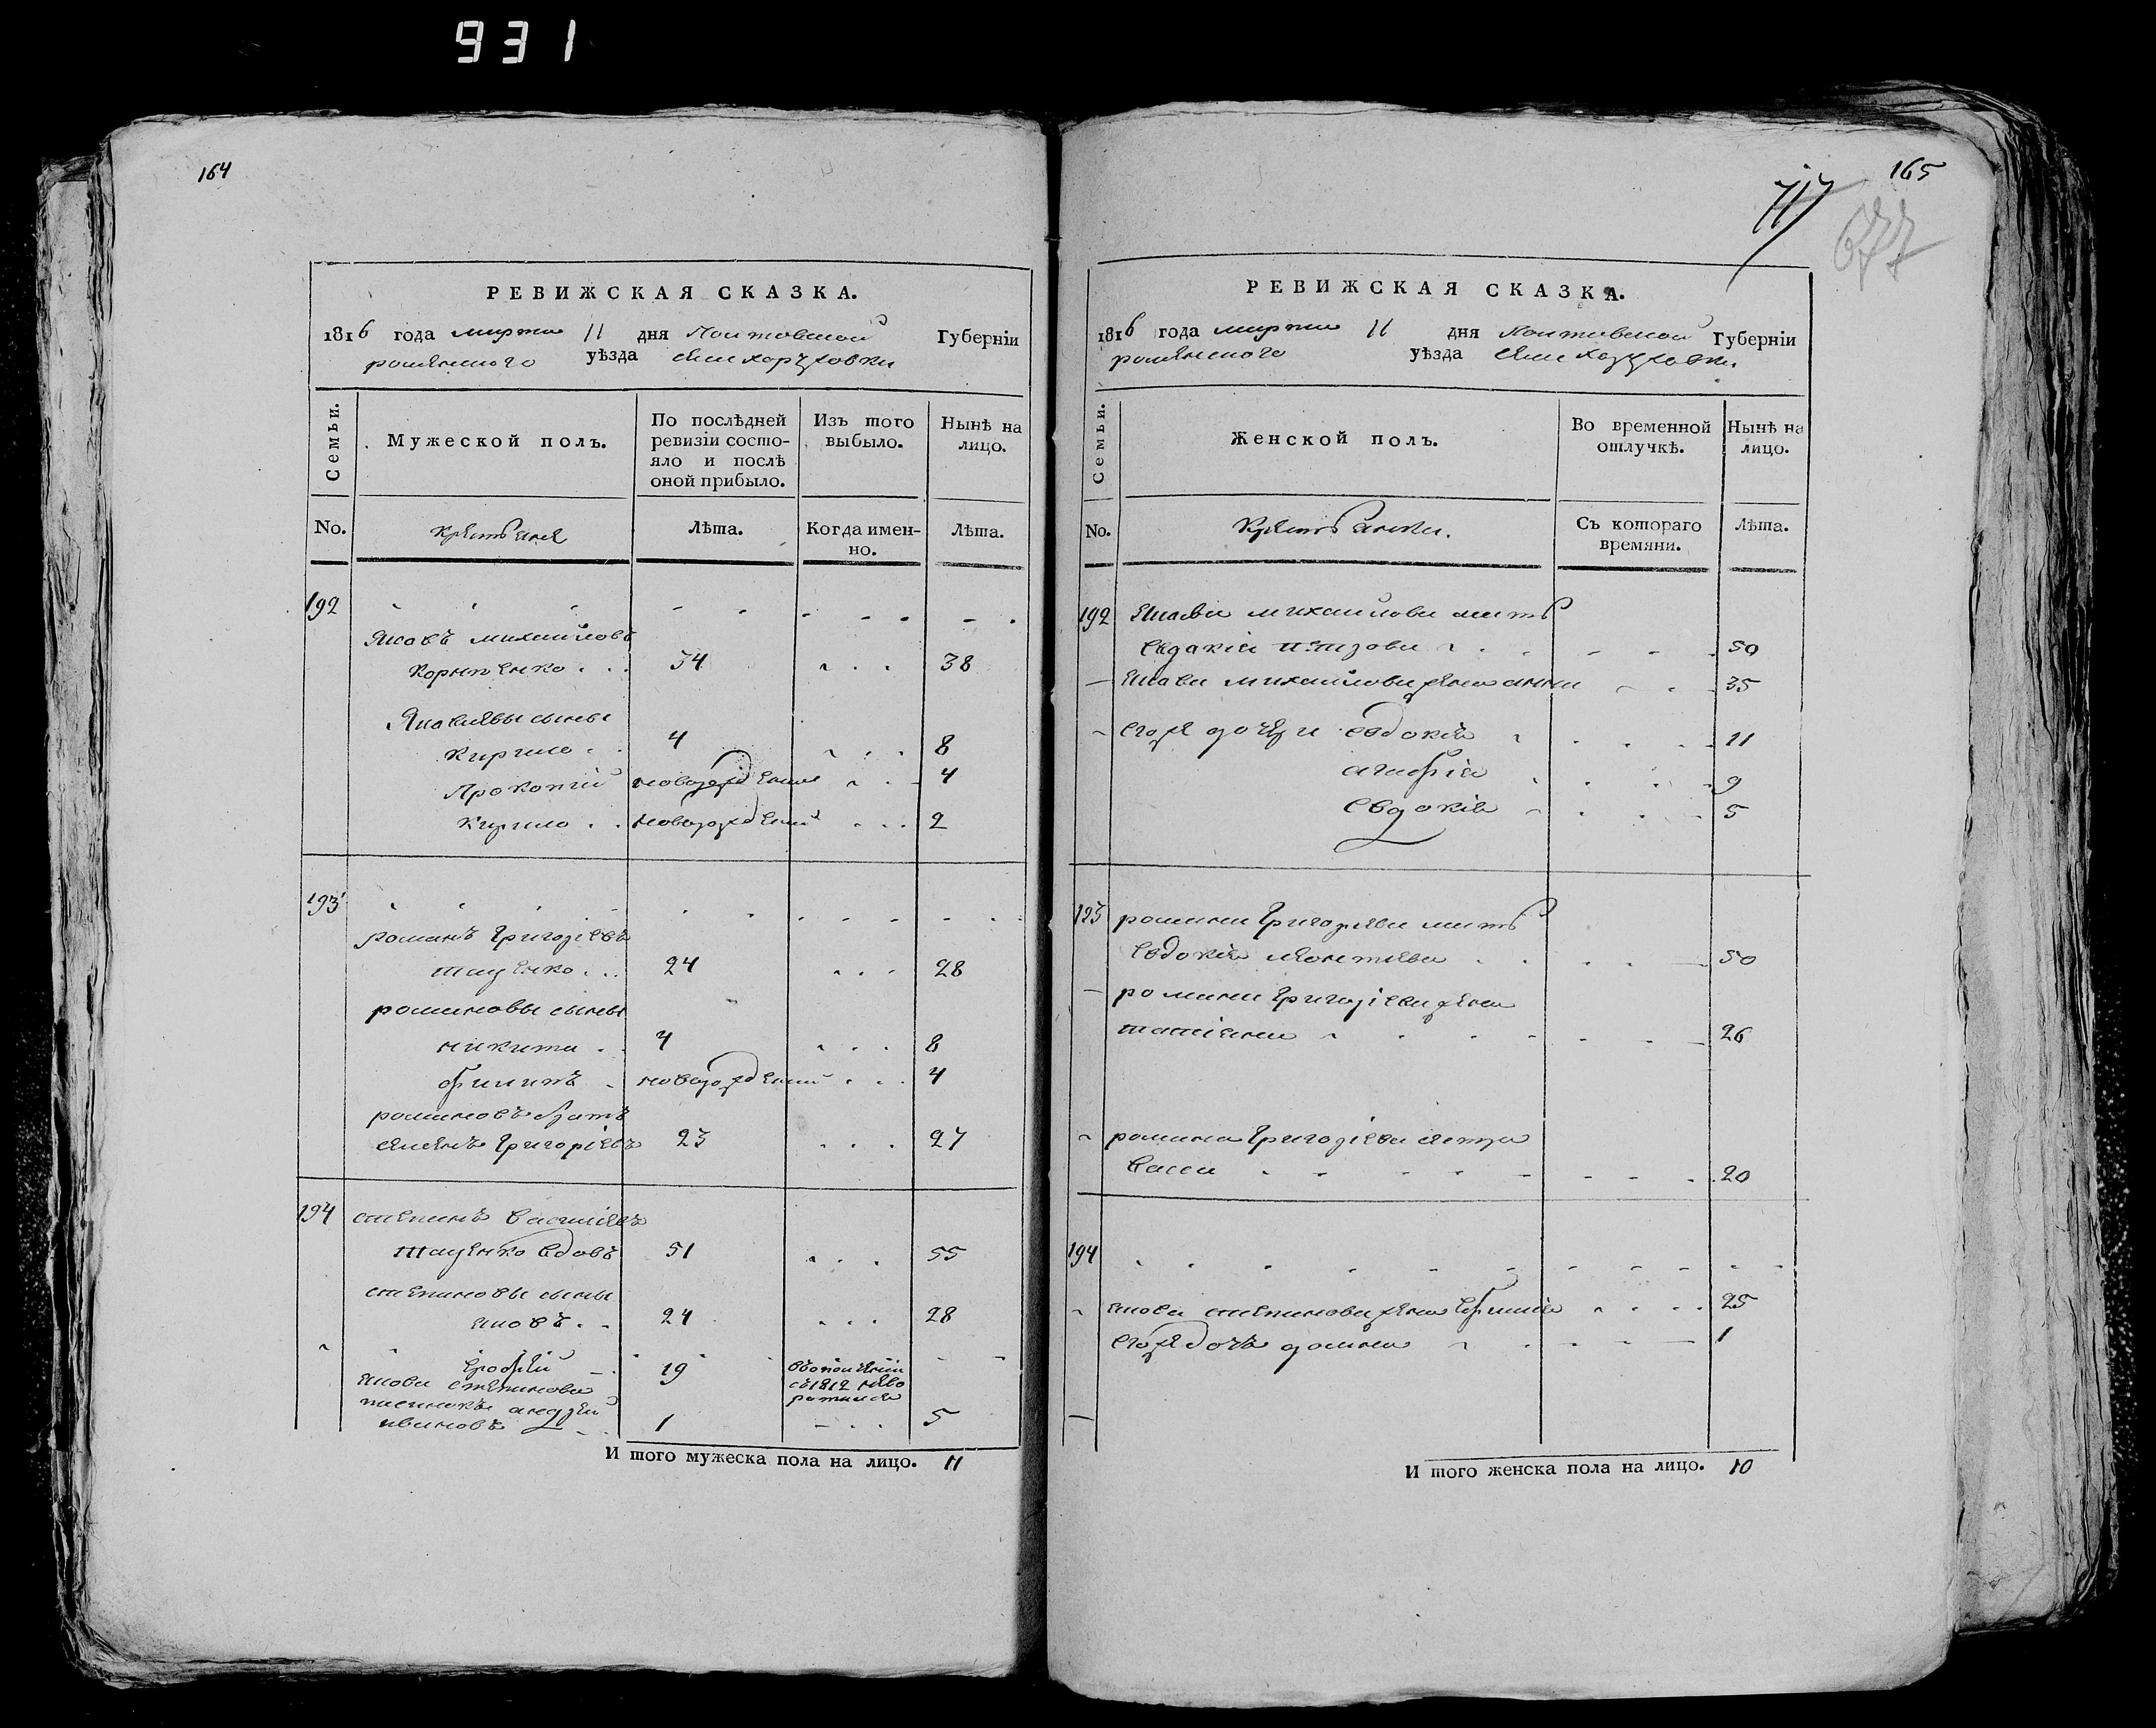 931
164
РЕВИЖСКАЯ СКАЗКА.
1816 года марта 11 дня Полтавской Губерніи
роменского уѣзда села харуховки
Семьи.
Мужеской полъ.
По послѣдней ревизіи состо-
яло и послѣ
оной прибыло.
Изъ того
выбыло.
Нынѣ на
лицо.
No.
крестьяне
Лѣта.
Когда имен-
но.
Лѣта.
192
Яковъ михайловъ
Корнпенко 34 38
Яковлевы сыны
Кирило 4 8
Прокопій новорожденные 4
Кирило новорожденный 2
193
романъ Григоріевъ
таценко 24 28
романовы сыны
никита 4 8
филипъ новорожденный 4
романовъ братъ
семенъ Григоріевъ 23 27
194 степанъ василіевъ
таценко вдовъ 51 55
степановы сыны
яковъ 24 28
Ерофѣй 19 въополченіи
якова степанова съ1812 нево
ратился
пасинокъ андрей
ивановъ 1 5
И того мужеска пола на лицо. 11
165
717
677
РЕВИЖСКАЯ СКАЗКА.
1816 года марта 11 дня Полтавской Губерніи
роменского уѣзда села харуховки
Семьи.
Женской полъ.
Во временной
отлучкѣ.
Нынѣ на
лицо.
No.
Крестьянки.
Съ котораго
времяни.
Лѣта.
192 якова михайлова мать
Евдакія петрова 50
якова михайлова жена анна 35
Егоже дочери евдокія 11
агафія 9
Евдокія 5
193 романа Григорьева мать
Евдокія леонтьева 50
романа Григоріева жена
татіяна 26
романа Григоріева сестра
васса 20
194
якова степанова жена Ефимія 25
Егоже дочь домна 1
И того женска пола на лицо. 10